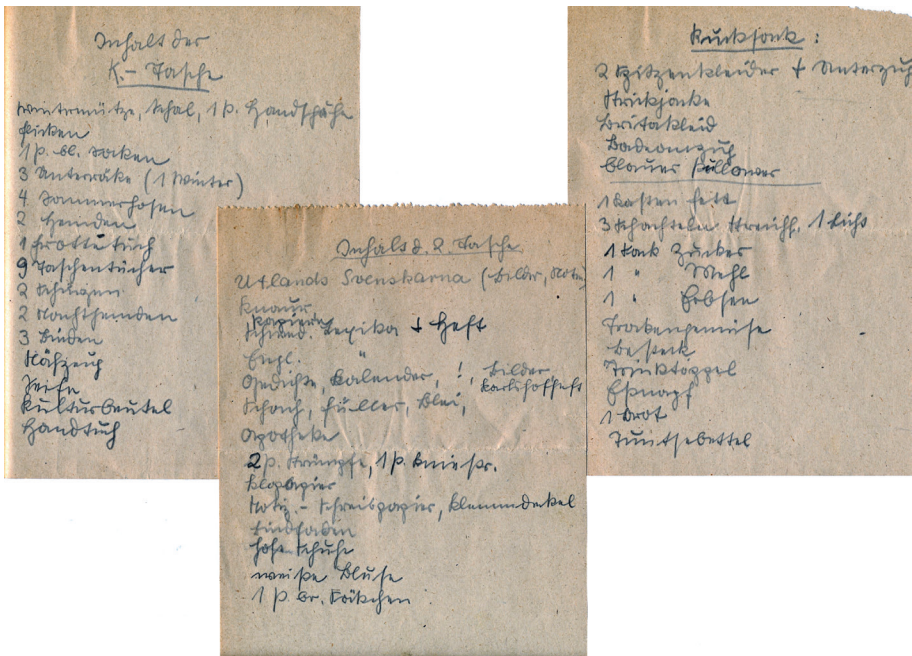 Inhalt der
K.- Tasche
Wintermütze, Schal, 1 P. Handschuhe
Flicken
1 P. bl. Socken
3 Unterröcke (1 Winter)
4 Sommerhosen
2 Hemden
1 Frottétuch
9 Taschentücher
2 Schürzen
2 Nachthemden
3 Binden
Nähzeug
Seife
Kulturbeutel
Handtuch
Inhalt d. 2. Tasche
Utlands Svenskarna (Bilder, Noten)
Knaur
Papiere
Schwed. Lexika + Heft
Engl. "
Gedichte, Kalender, !, Bilder
Karlshofheft
Schach, Füller, Blei,
Apotheke
2 P. Strümpfe, 1 P. Kniestr.
Klopapier
Notiz - Schreibpapier, Klemmdeckel
Bindfaden
hohe Schuhe
weiße Bluse
1 P. br. Söckchen
Rucksack:
2 Spitzenkleider + Unterzug
Strickjacke
Britakleid
Badeanzug
blauer Pullover
1 Kasten Fett
3 Schachteln Streichh, 1 Licht
1 Sack Zucker
1 " Mehl
1 " Erbsen
Trockengemüse
Besteck
Trinktöppel
Eßnapf
1 Brot